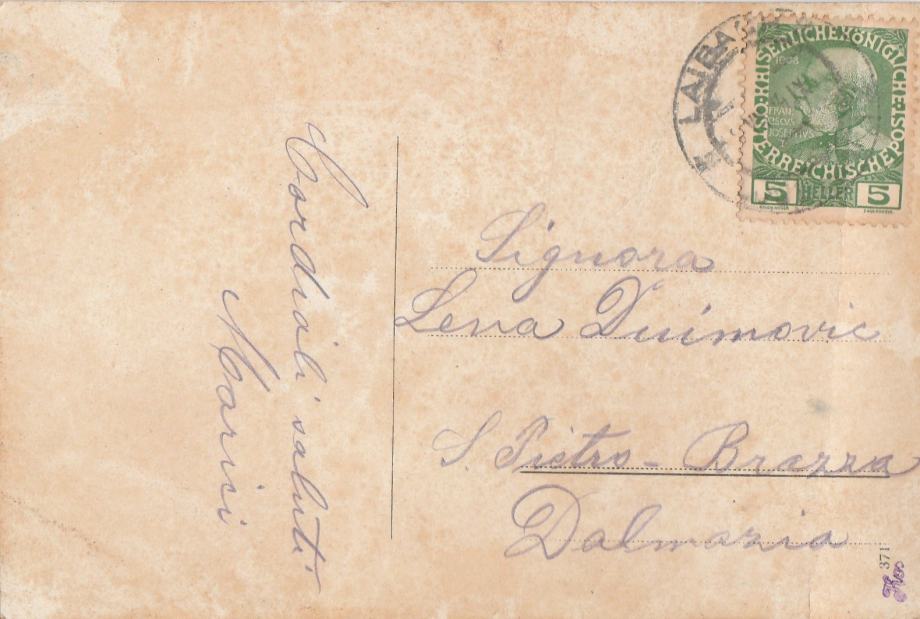 Cordiali saluti
Marici
LAIBACH
KAISERLICHE KÖNIGLICHE
ÖSTERREICHISCHE POST
1908
FRAN
CISCVS
IOSEPHVS I
5 HELLER 5
Signora
Leva Duimovic
S. Pietro - Brazza
Dalmazia
371